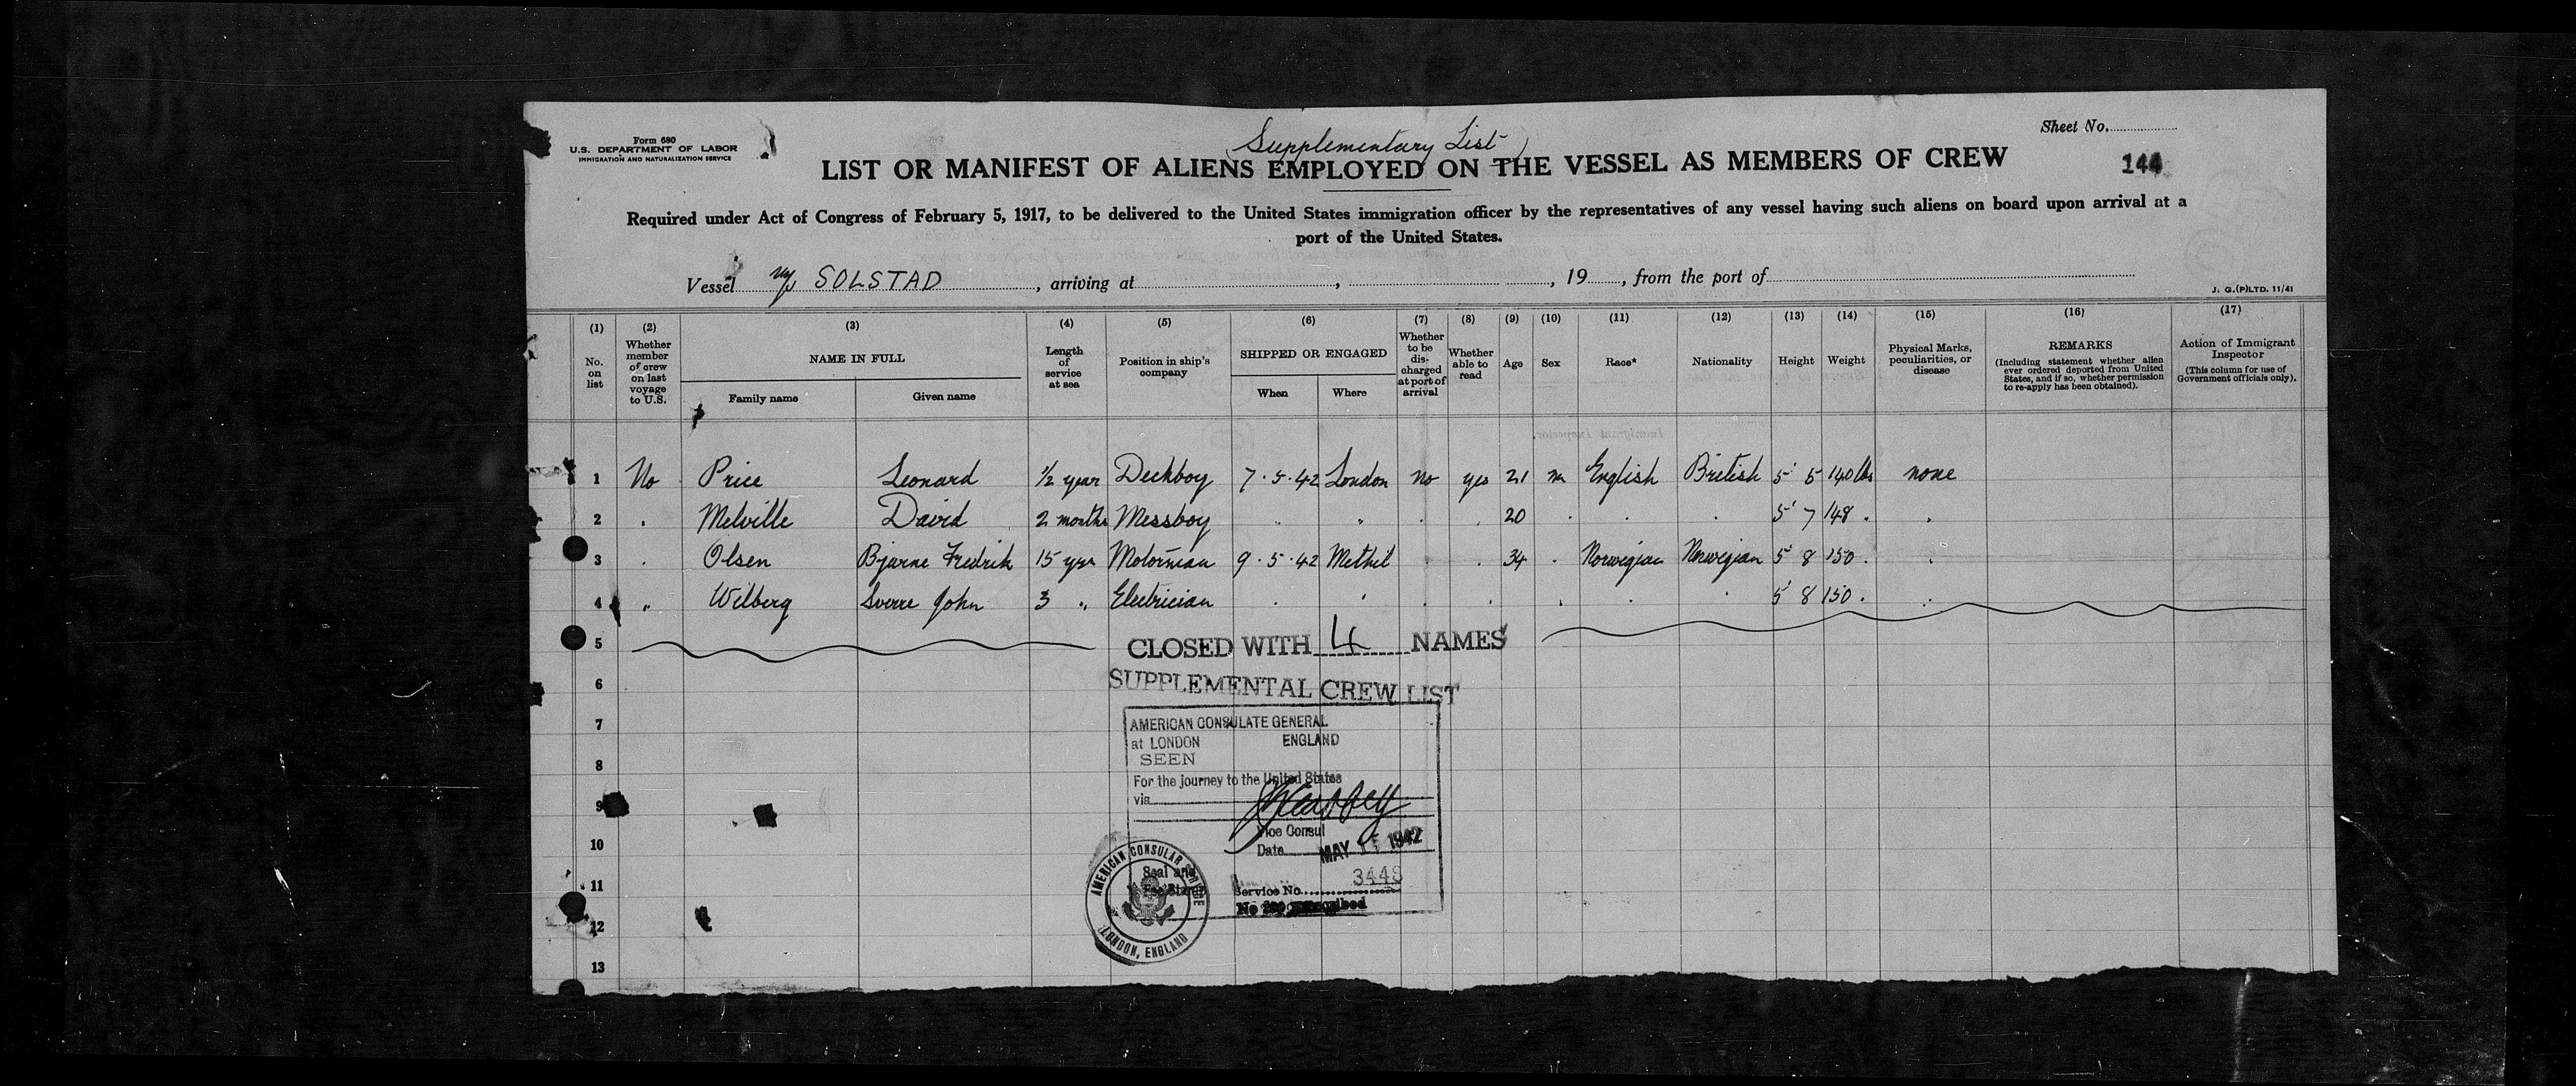 Form 680
U.S. DEPARTMENT OF LABOR
IMMIGRATION AND NATURALIZATION SERVICE
Sheet No.
Supplementary List
LIST OR MANIFEST OF ALIENS EMPLOYED ON THE VESSEL AS MEMBERS OF CREW
144
Required under Act of Congress of February 5, 1917, to be delivered to the United States immigration officer by the representatives of any vessel having such aliens on board upon arrival at a
port of the United States.
Vessel M/S SOLSTAD, arriving at , , 19 , from the port of
J. G.(P)LTD. 11/41
(1) (2) (3) (4) (5) (6) (7) (8) (9) (10) (11) (12) (13) (14) (15) (16) (17)
No. on list
Whether member of crew on last voyage to U.S.
NAME IN FULL
Family name
Given name
Length of service at sea
Position in ship's company
SHIPPED OR ENGAGED
When
Where
Whether to be discharged at port of arrival
Whether able to read
Age
Sex
Race*
Nationality
Height
Weight
Physical Marks, peculiarities, or disease
REMARKS
(Including statement whether alien ever ordered deported from United States, and if so, whether permission to re-apply has been obtained).
Action of Immigrant Inspector
(This column for use of Government officials only).
1 No Price Leonard 1/2 year Deckboy 7.5.42 London no yes 21 m English British 5' 5 140 lbs none
2 " Melville David 2 months Messboy " " " " 20 " " " 5' 7 148 " "
3 " Olsen Bjarne Fredrik 15 yrs Motorman 9.5.42 Methil " " 34 " Norwegian Norwegian 5' 8 150 " "
4 " Wilberg Sverre John 3 " Electrician " " " " " " " 5' 8 150 " "
5 CLOSED WITH 4 NAMES
6 SUPPLEMENTAL CREW LIST
7 AMERICAN CONSULATE GENERAL
at LONDON ENGLAND
8 SEEN
For the journey to the United States
9 via
Vice Consul
10 Date MAY 1942
11 Seal and Fee Stamp
Service No. 3448
No fee prescribed
AMERICAN CONSULAR SERVICE
LONDON, ENGLAND
12
13